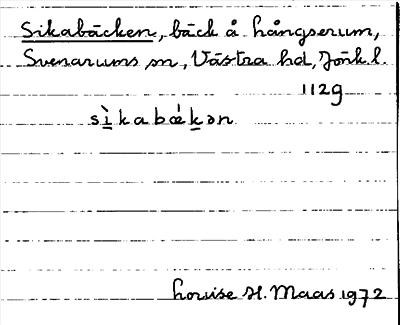 Sikabäcken, bäck å Långserum,
Svenarums sn, Västra hd, Jönk l.
112g
sìkabǽkən
Louise H. Maas 1972